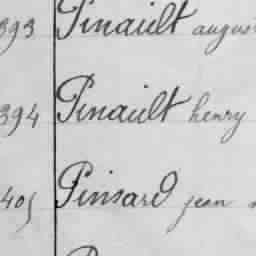 393 Pinault august
394 Pinault henry
405 Pinsard jean